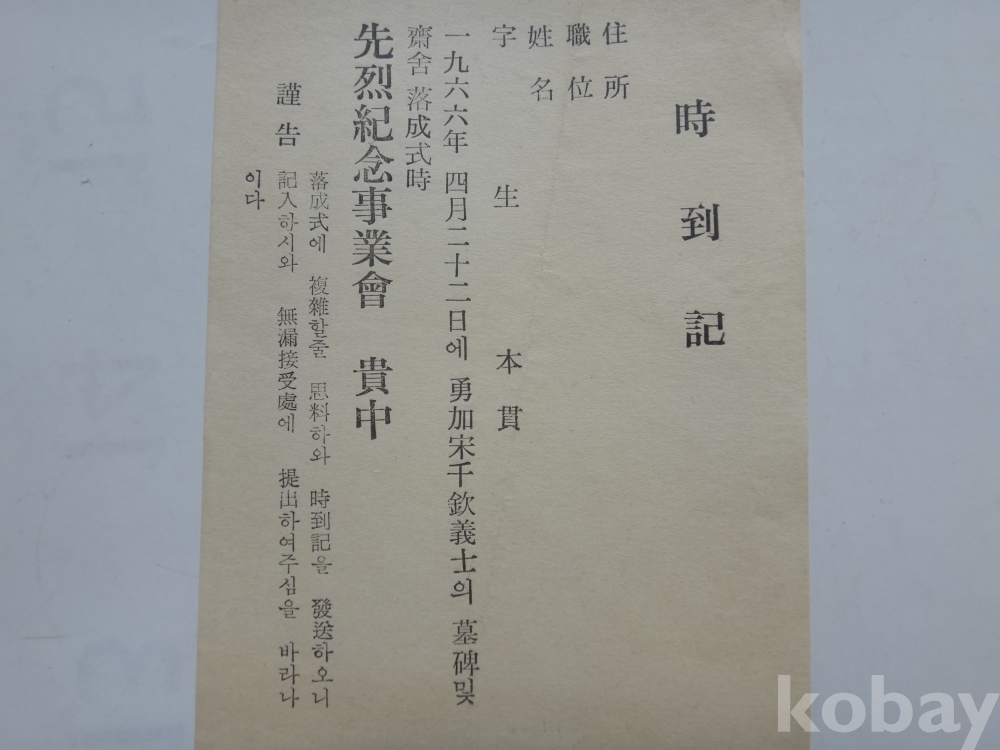 時到記
住所
職位
姓名
字 生 本貫
一九六六年 四月二十二日에 勇加宋千欽義士의 墓碑및
齋舍 落成式時
先烈紀念事業會 貴中
謹告
落成式에 複雜할줄 思料하와 時到記을 發送하오니
記入하시와 無漏接受處에 提出하여주심을 바라나
이다
kobay